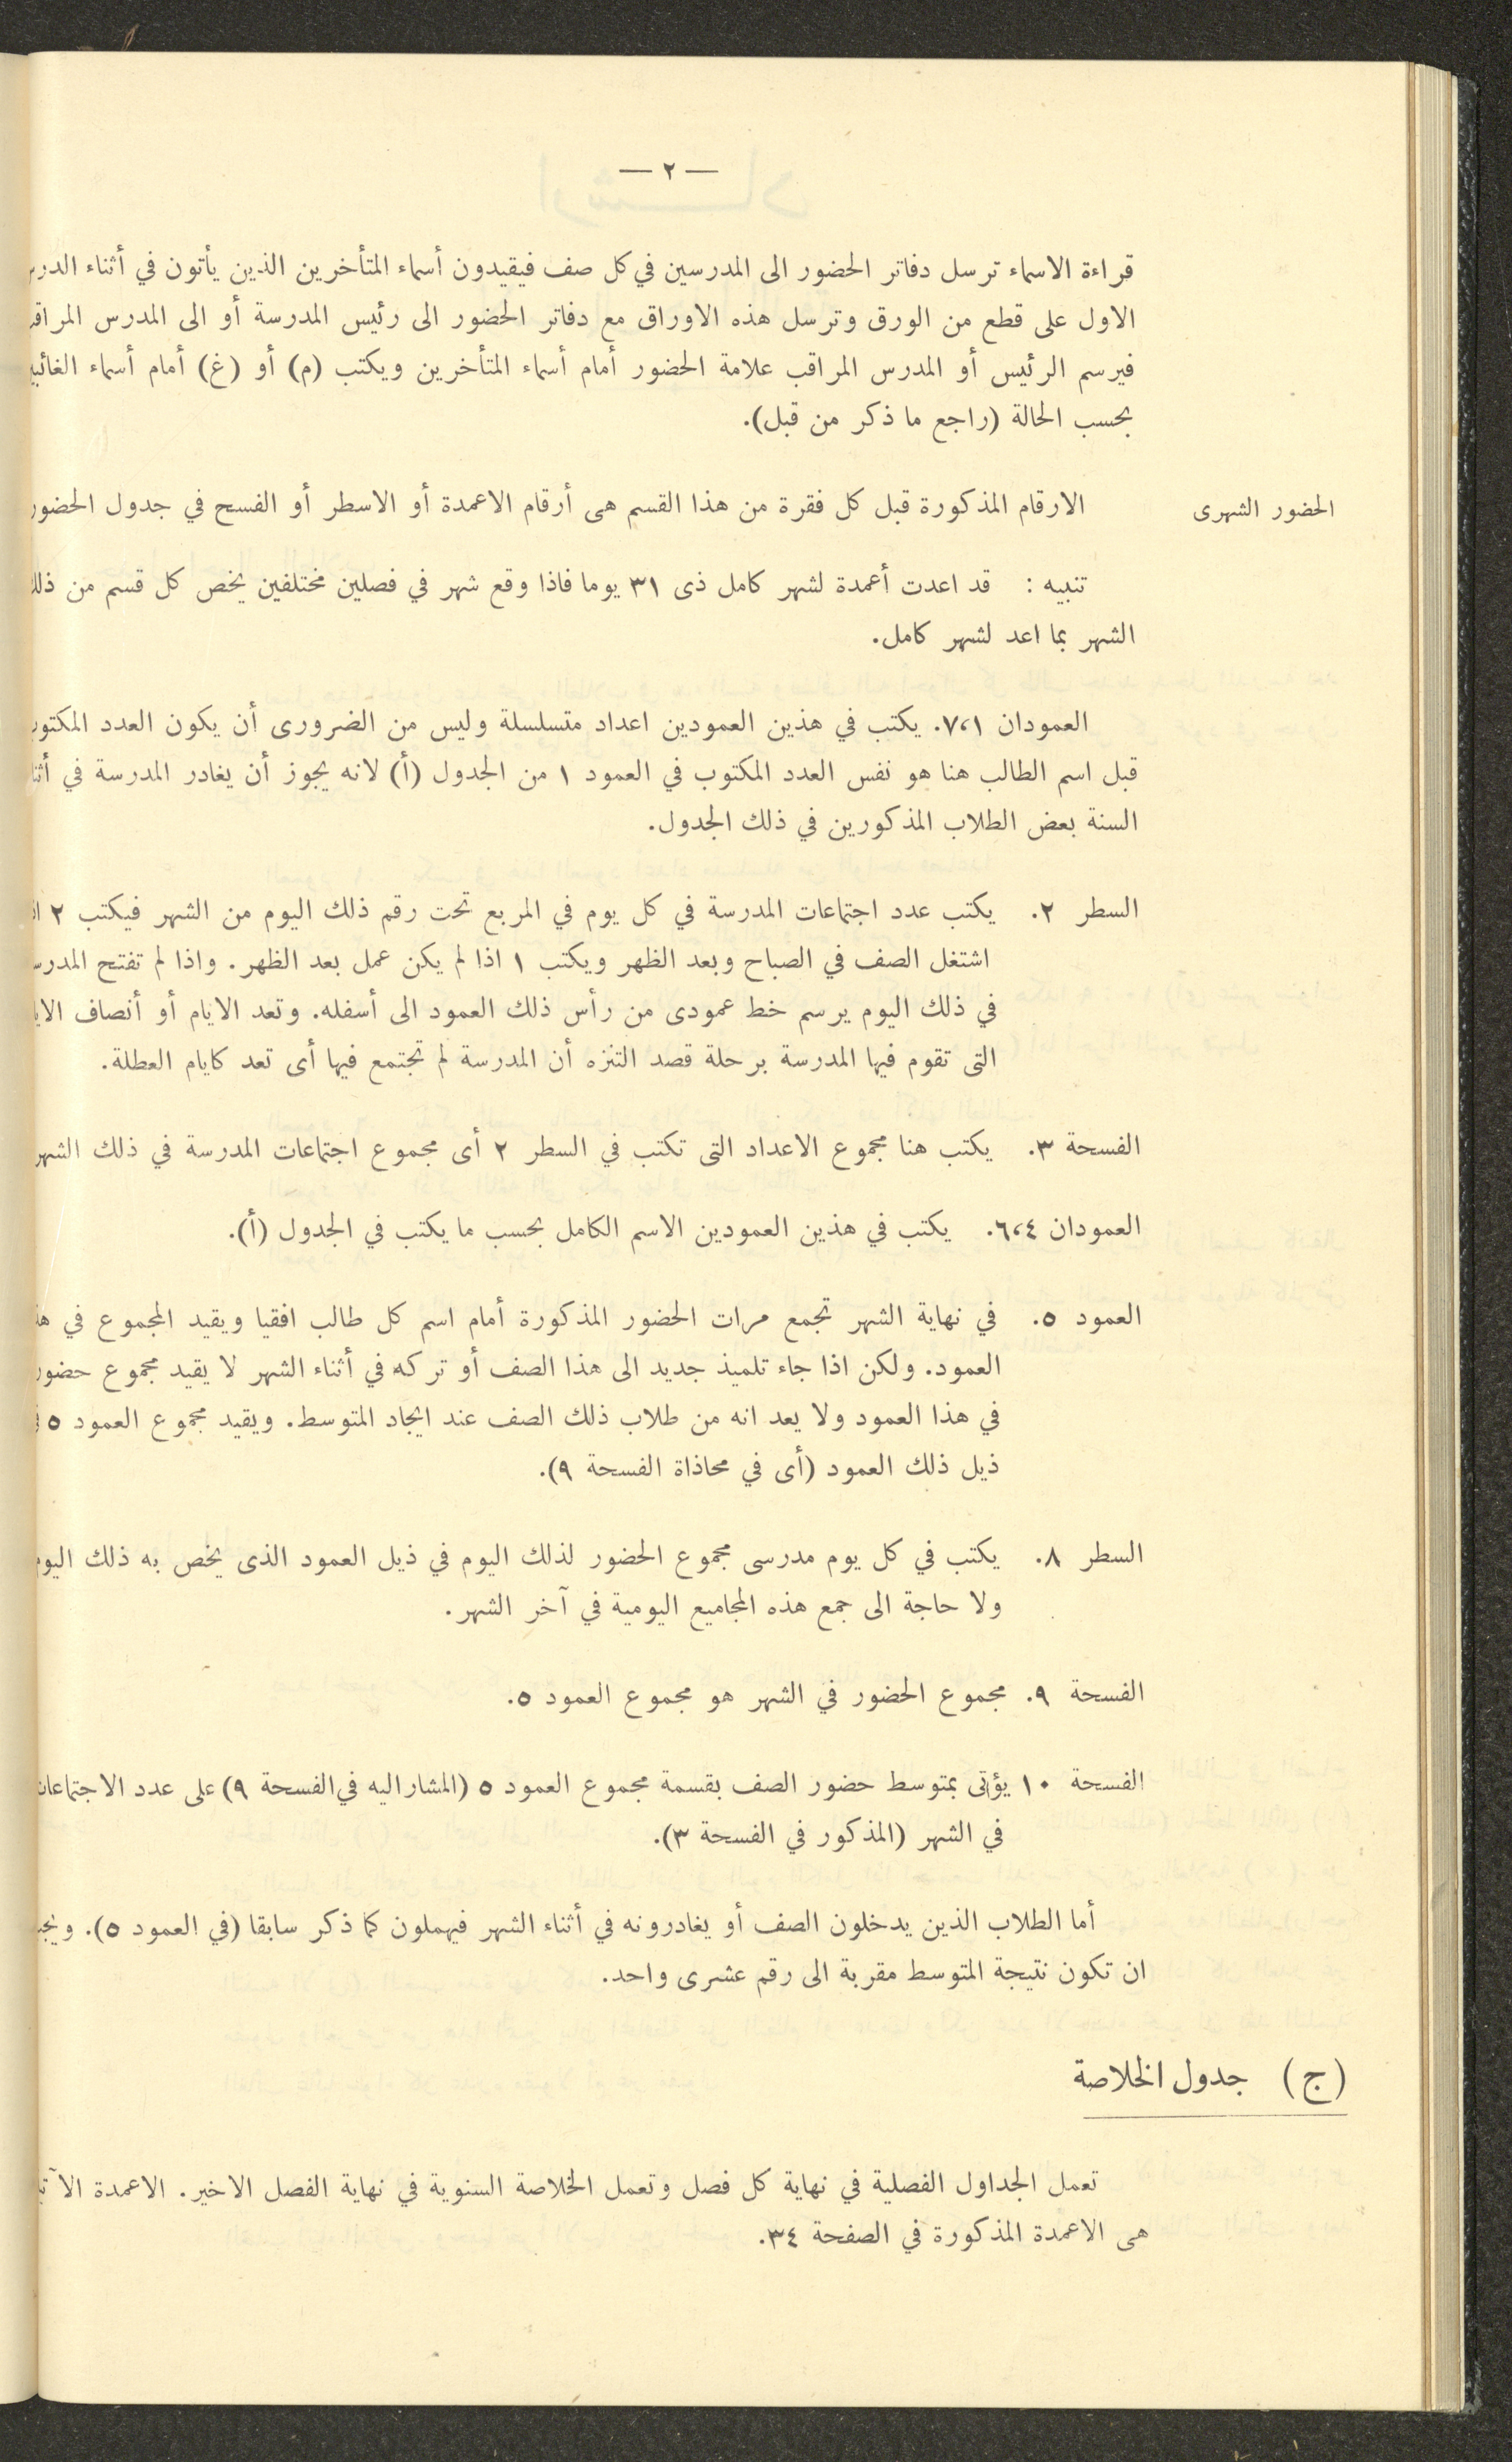 — ٢ —
قراءة الاسماء ترسل دفاتر الحضور الى المدرسين في كل صف فيقيدون أسماء المتأخرين الذين يأتون في أثناء
الاول على قطع من الورق وترسل هذه الاوراق مع دفاتر الحضور الى رئيس المدرسة أو الى المدرس
فيرسم الرئيس أو المدرس المراقب علامة الحضور أمام أسماء المتأخرين ويكتب (م) أو (غ) أمام أسماء
بحسب الحالة (راجع ما ذكر من قبل).
الحضور الشهرى
الارقام المذكورة قبل كل فقرة من هذا القسم هى أرقام الاعمدة أو الاسطر أو الفسح في جدول الحضور
تنبيه : قد اعدت أعمدة لشهر كامل ذى ٣١ يوما فاذا وقع شهر في فصلين مختلفين يخص كل قسم من
الشهر بما اعد لشهر كامل.
العمودان ٧،١. يكتب في هذين العمودين اعداد متسلسلة وليس من الضرورى أن يكون العدد
قبل اسم الطالب هنا هو نفس العدد المكتوب في العمود ١ من الجدول (أ) لانه يجوز أن يغادر المدرسة في
السنة بعض الطلاب المذكورين في ذلك الجدول.
السطر ٢. يكتب عدد اجتماعات المدرسة في كل يوم في المربع تحت رقم ذلك اليوم من الشهر فيكتب ٢
اشتغل الصف في الصباح وبعد الظهر ويكتب ١ اذا لم يكن عمل بعد الظهر. واذا لم تفتح
في ذلك اليوم يرسم خط عمودى من رأس ذلك العمود الى أسفله. وتعد الايام أو أنصاف
التى تقوم فيها المدرسة برحلة قصد التنزه أن المدرسة لم تجتمع فيها أى تعد كايام العطلة.
الفسحة ٣. يكتب هنا مجموع الاعداد التى تكتب في السطر ٢ أى مجموع اجتماعات المدرسة في ذلك الشهر
العمودان ٦،٤. يكتب في هذين العمودين الاسم الكامل بحسب ما يكتب في الجدول (أ).
العمود ٥. في نهاية الشهر تجمع مرات الحضور المذكورة أمام اسم كل طالب افقيا ويقيد المجموع في
العمود. ولكن اذا جاء تلميذ جديد الى هذا الصف أو تركه في أثناء الشهر لا يقيد مجموع
في هذا العمود ولا يعد انه من طلاب ذلك الصف عند ايجاد المتوسط. ويقيد مجموع العمود ٥
ذيل ذلك العمود (أى في محاذاة الفسحة ٩).
السطر ٨. يكتب في كل يوم مدرسى مجموع الحضور لذلك اليوم في ذيل العمود الذى يخص به ذلك اليوم
ولا حاجة الى جمع هذه المجاميع اليومية في آخر الشهر.
الفسحة ٩. مجموع الحضور في الشهر هو مجموع العمود ٥.
الفسحة ١٠ يؤتى بمتوسط حضور الصف بقسمة مجموع العمود ٥ (المشار اليه في الفسحة ٩) على عدد الاجتماعات
في الشهر (المذكور في الفسحة ٣).
أما الطلاب الذين يدخلون الصف أو يغادرونه في أثناء الشهر فيهملون كما ذكر سابقا (في العمود ٥).
ان تكون نتيجة المتوسط مقربة الى رقم عشرى واحد.
(ج) جدول الخلاصة
تعمل الجداول الفصلية في نهاية كل فصل وتعمل الخلاصة السنوية في نهاية الفصل الاخير. الاعمدة
هى الاعمدة المذكورة في الصفحة ٣٤.